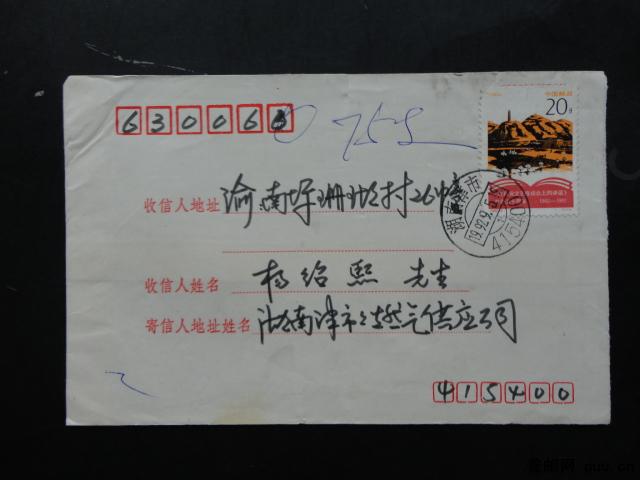 630060
0759
中国邮政
20分
收信人地址 渝南坪珊瑚村26幢
湖南津市
1992.9.
415400
1942—1992
收信人姓名 杨绍熙 先生
寄信人地址姓名 湖南津市燃气供应公司
415400